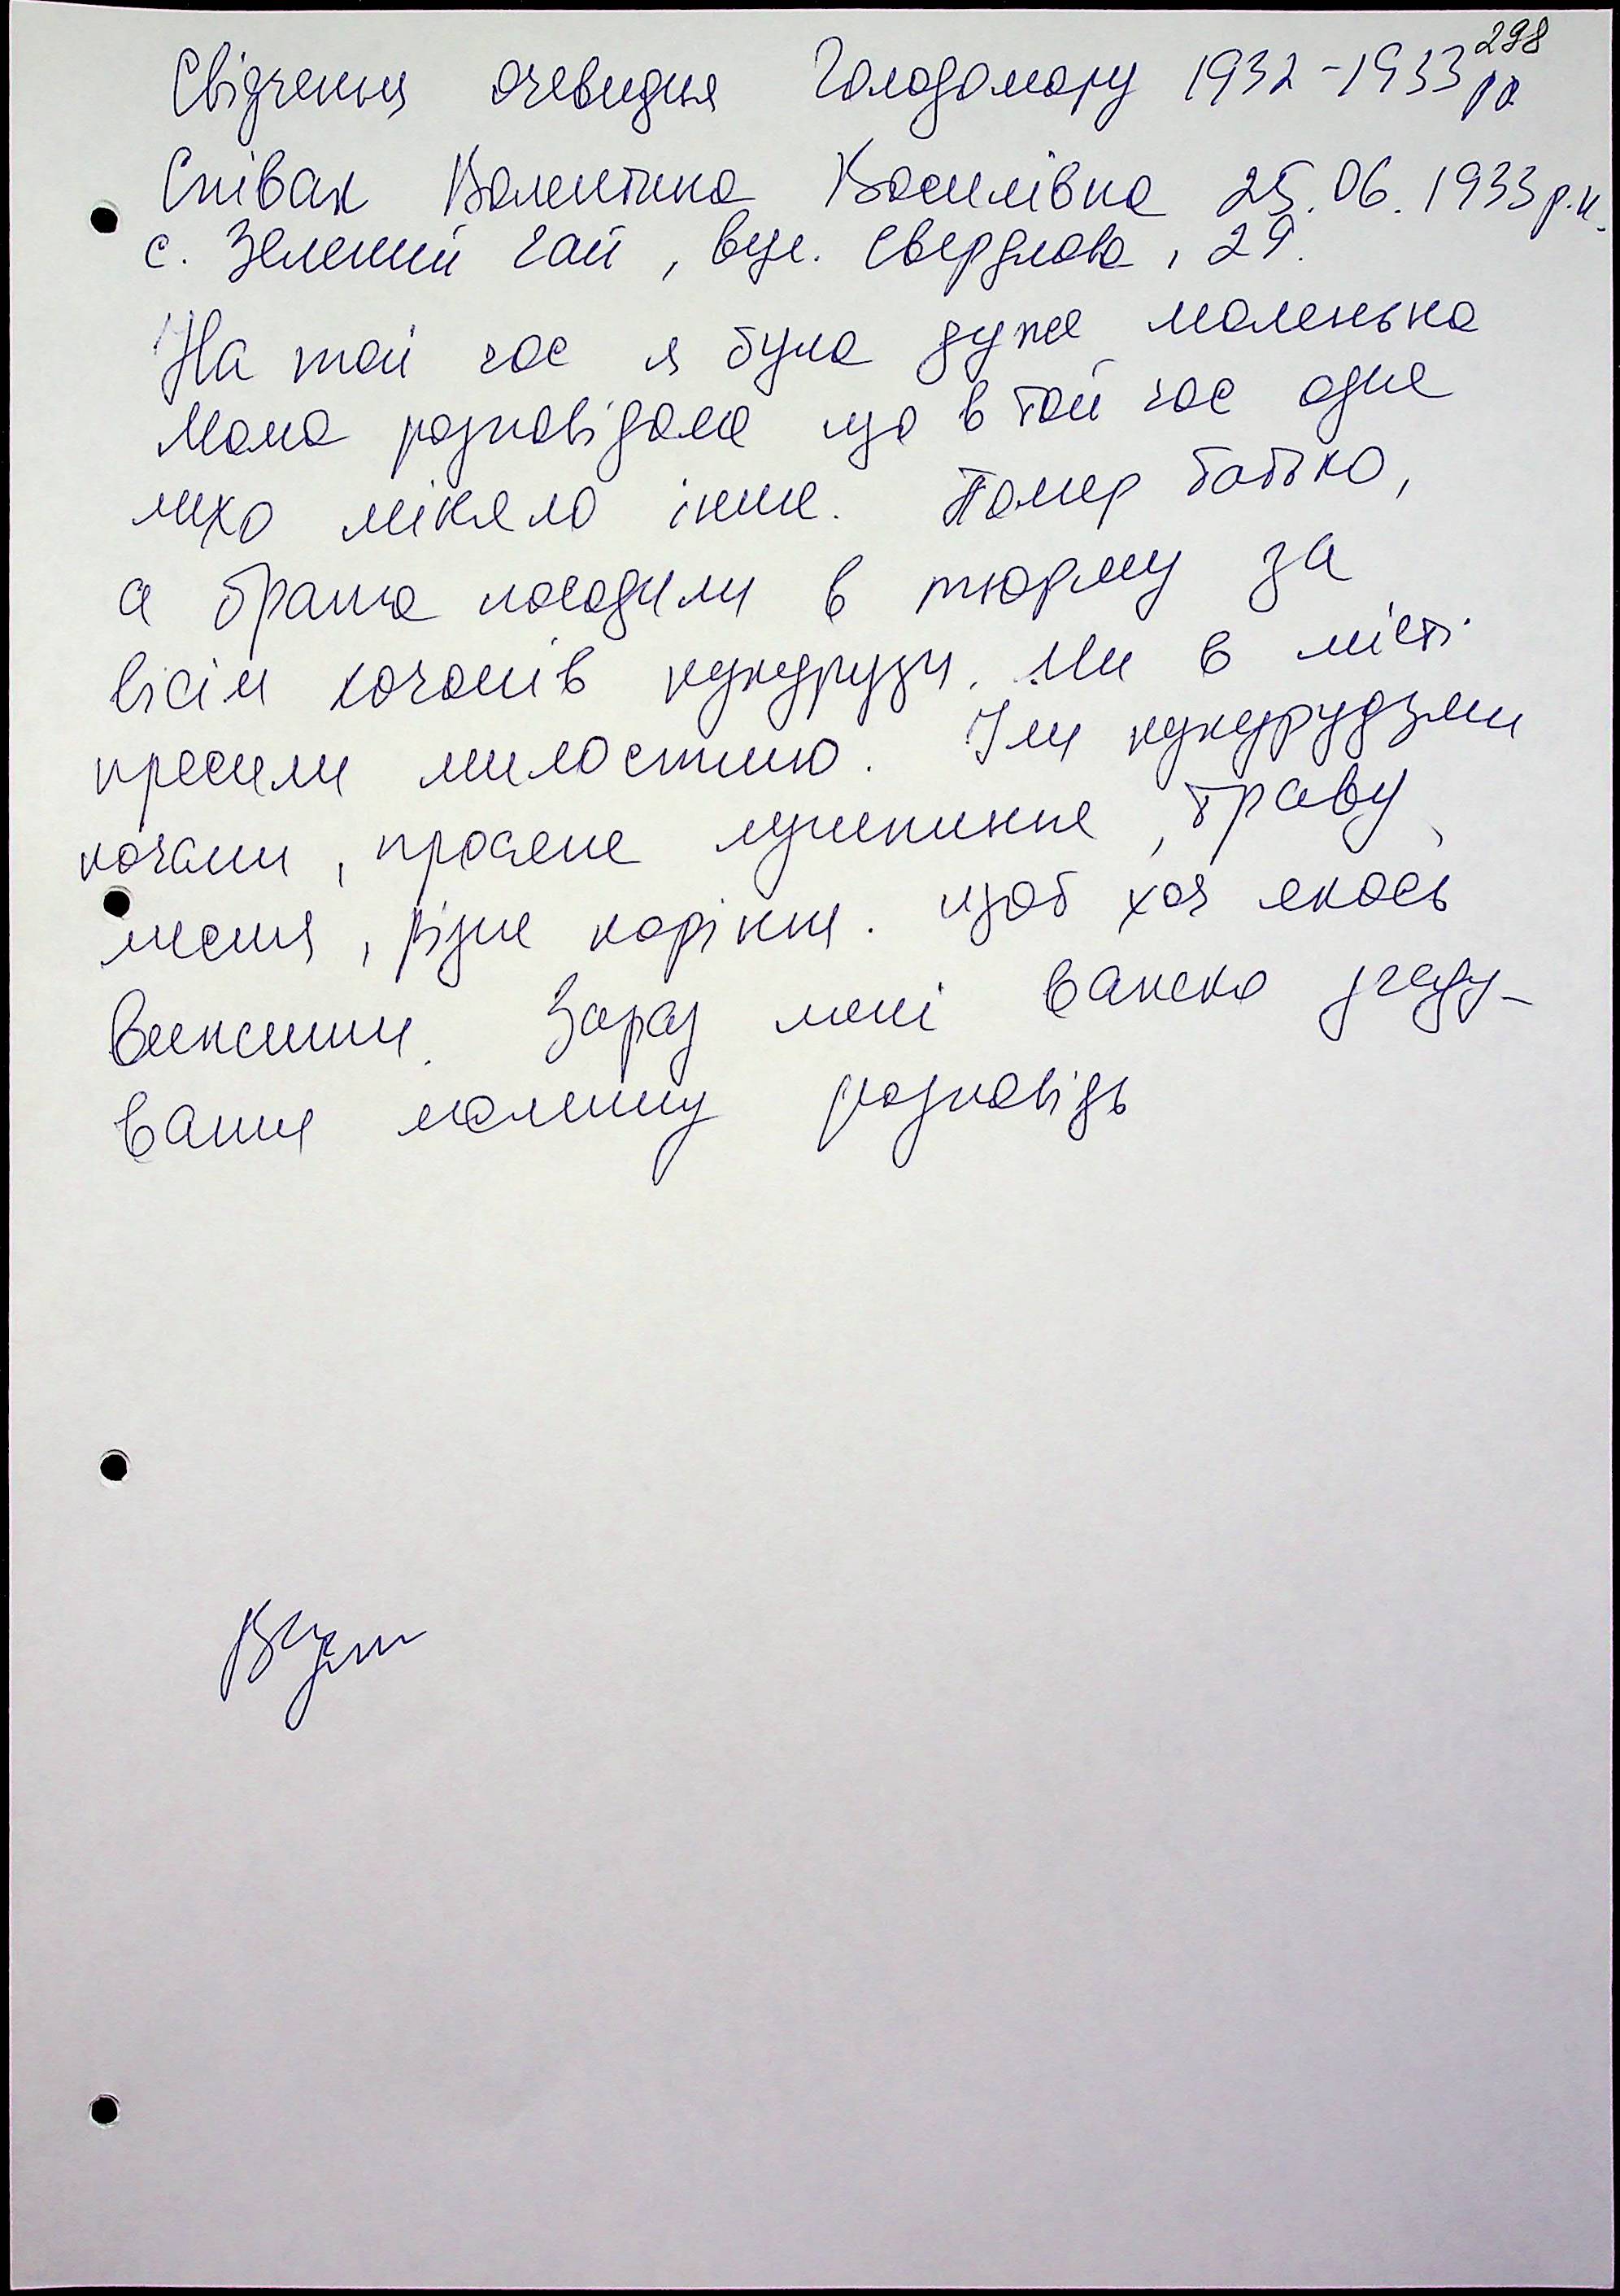 298
Свідчення очевидця Голодомору 1932-1933 рр.
Співак Валентина Василівна 25.06.1933 р.н.
с. Зелений Гай, вул. Свердлова, 29.
На той час я була дуже маленька
Мама розповідала що в той час одне
лихо міняло інше. Помер батько,
а брата посадили в тюрму за
вісім качанів кукурузи. Ми в місті
просили милостиню. Їли кукурудзяні
качани, просяне лушпиння, траву,
листя, різне коріння. щоб хоч якось
вижити. Зараз мені важко згаду-
вати мамину розповідь